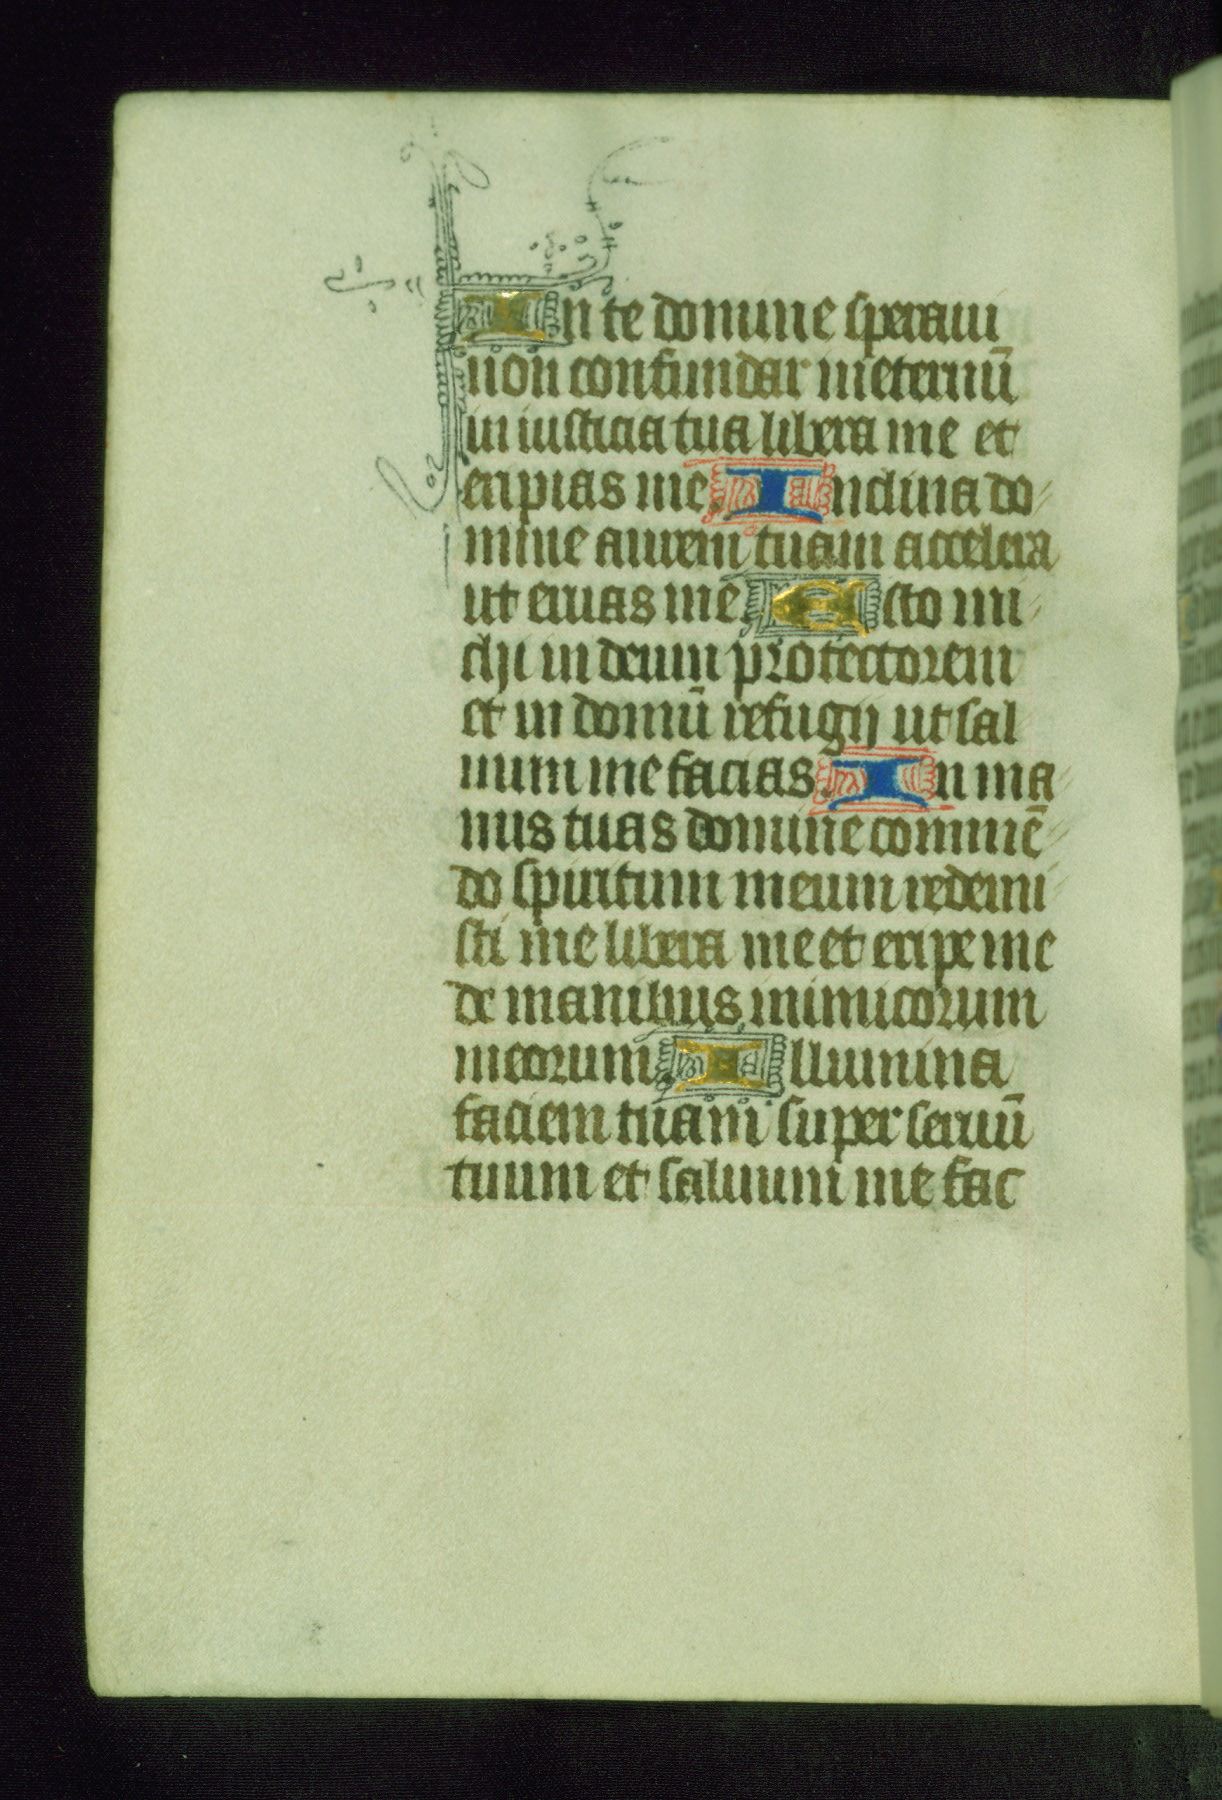 In te domine speraui
non confundar in eternū
in iusticia tua libera me et
eripias me. Inclina do
mine aurem tuam accelera
ut eruas me. Esto mi
chi in deum protectorem
et in domū refugij ut sal
uum me facias. In ma
nus tuas domine commē
do spiritum meum redemi
sti me libera me et eripe me
de manibus inimicorum
meorum. Illumina
faciem tuam super seruū
tuum et saluum me fac